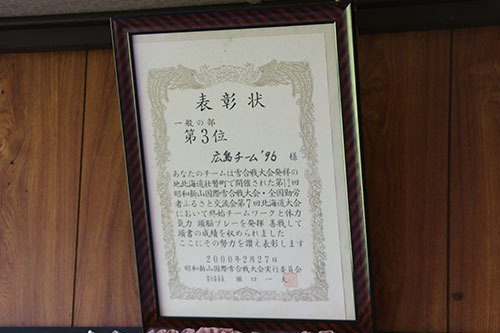 表彰状
一般の部
第3位
広島チーム'96 様
あなたのチームは雪合戦大会発祥の
地北海道壮瞥町で開催された第12回
昭和新山国際雪合戦大会・全国勤労
者ふるさと交流会第7回北海道大会
において終始チームワークと体力
気力 頭脳プレーを発揮 善戦して
頭書の成績を収められました
ここにその努力を讃え表彰します
2000年2月27日
昭和新山国際雪合戦大会実行委員会
口一